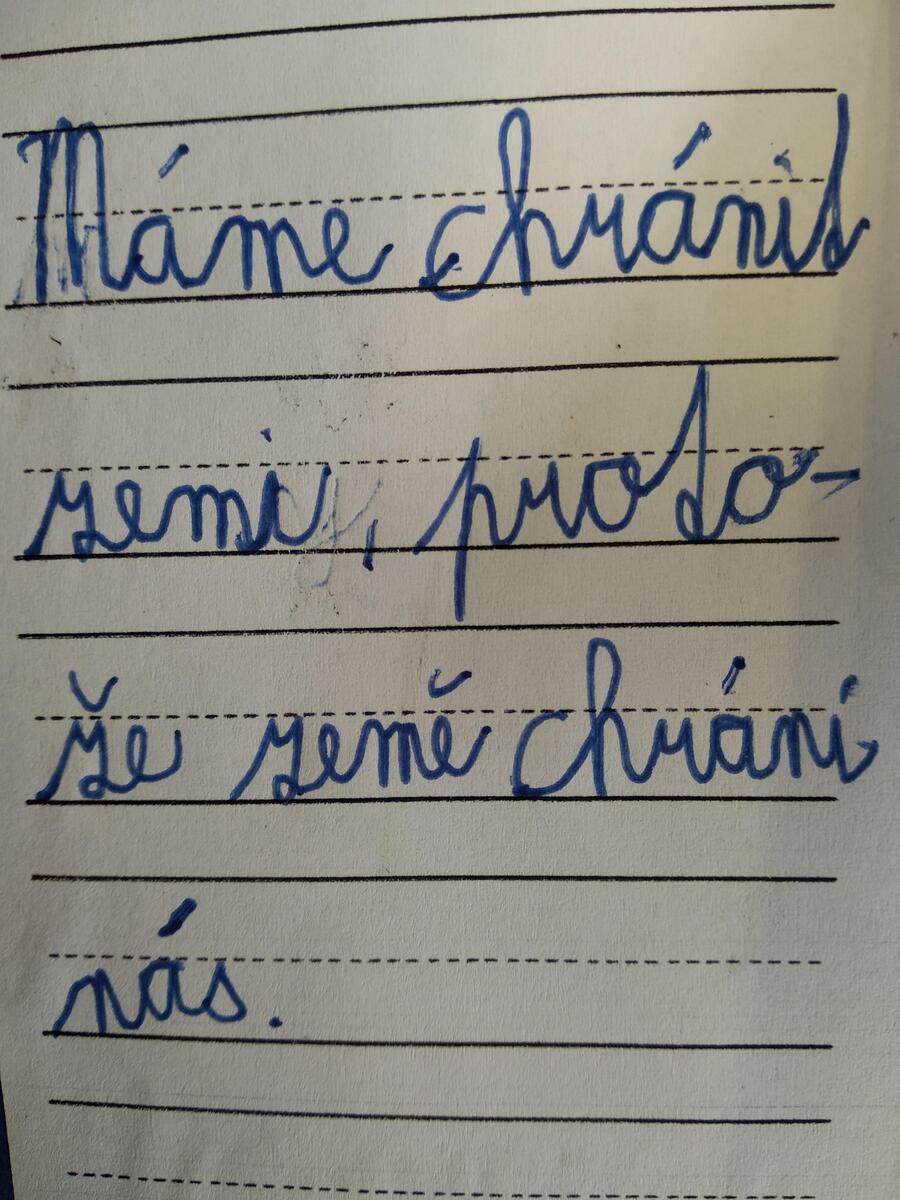 Máme chránit
zemi, proto-
že země chrání
nás.